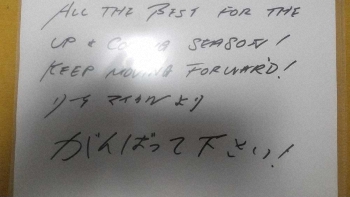 ALL THE BEST FOR THE
UP & COMING SEASON!
KEEP MOVING FORWARD!
リーチ マイケルより
がんばって下さい!